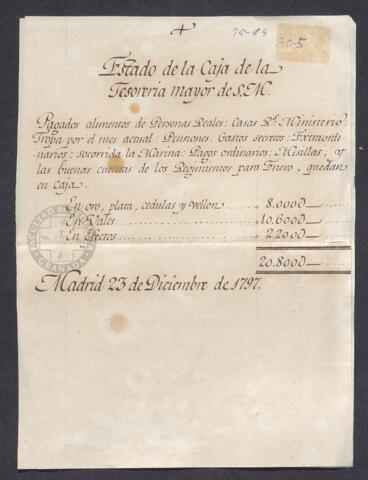 +
75-89
30-5
Estado de la Caja de la
Tesoreria mayor de S.M.
Pagados alimentos de Personas Reales: Casas R.s Ministerio
Tropa por el mes actual: Pensiones: Gastos secretos: Extraordi-
narios: socorrida la Marina: Pagos ordinarios: Mesillas, y
las buenas cuentas de los Regimientos para Enero, quedan
en Caja:
En oro, plata, cedulas y vellon 8.000U
En Vales 10.600U
En Efectos 2.200U
20.800U
Madrid 23 de Diciembre de 1797.